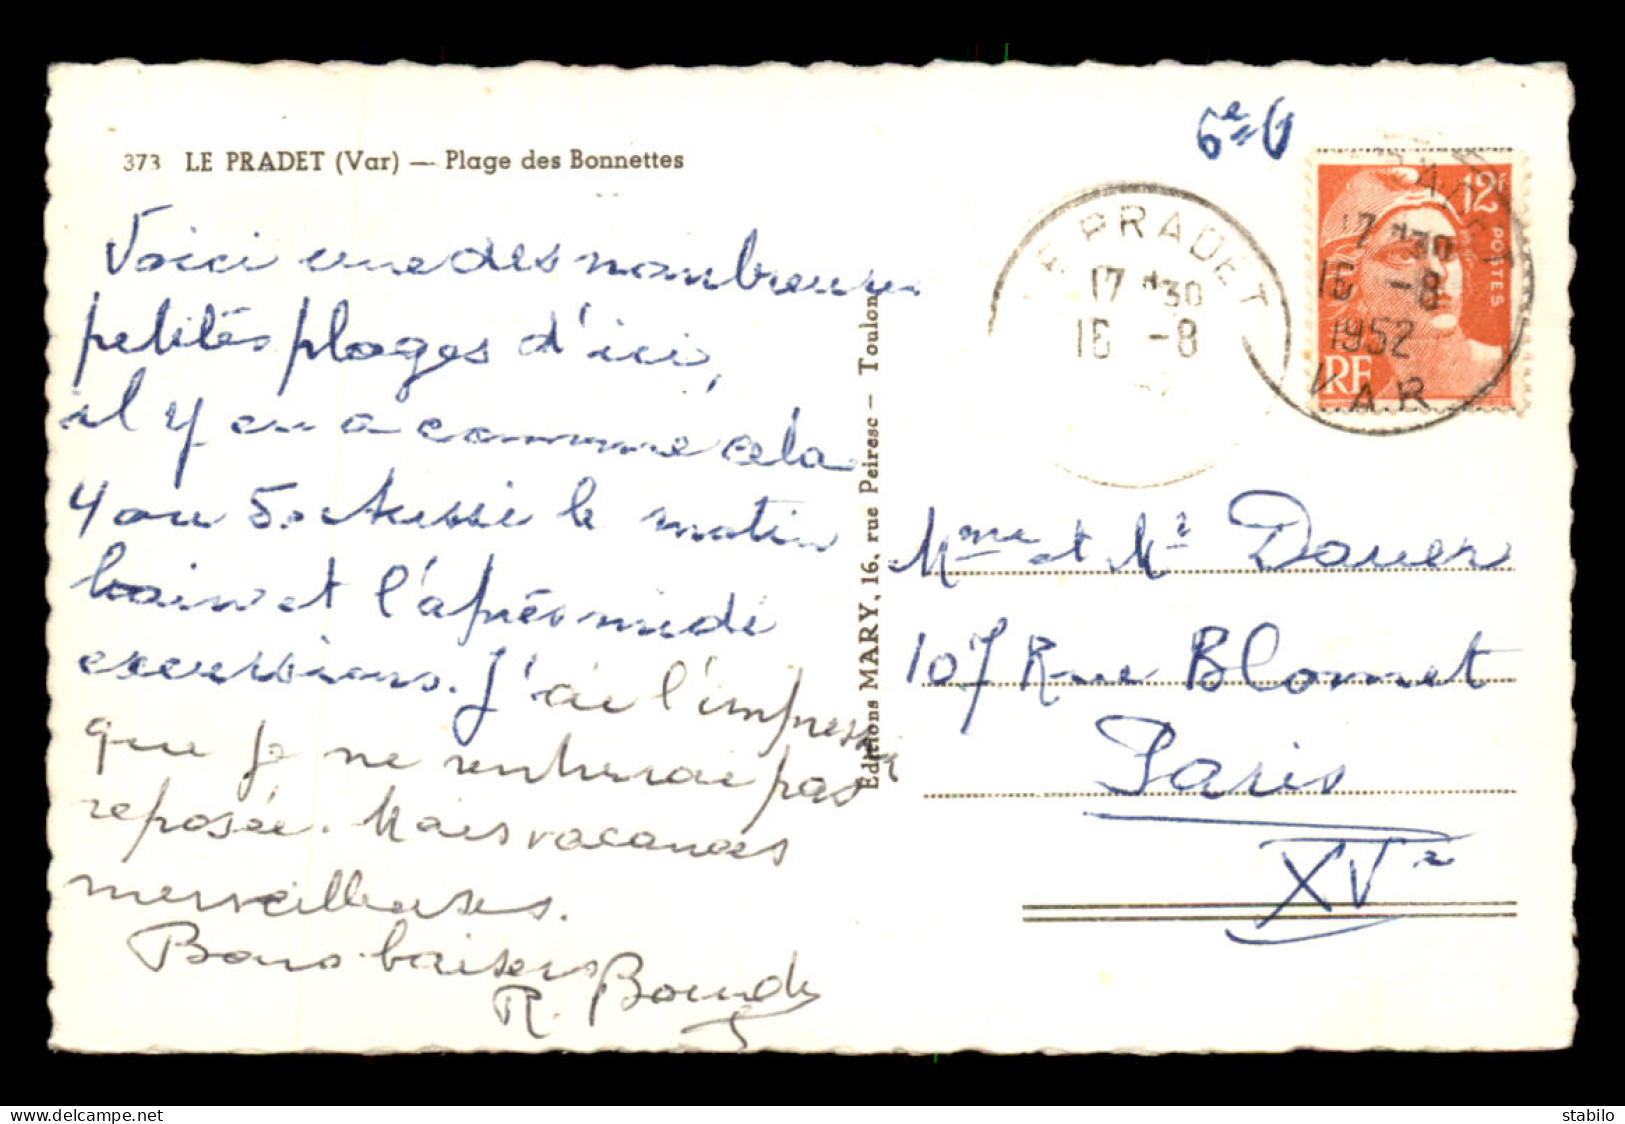 373 LE PRADET (Var) — Plage des Bonnettes
Voici une des nombreuses
petites plages d'ici,
il y en a comme cela
4 ou 5. Aussi le matin
bain et l'après midi
excursions. J'ai l'impression
que je ne rentrerai pas
reposée. Mais vacances
merveilleuses.
Bons baisers
R.
Editions MARY, 16, rue Peiresc — Toulon
6e G
LE PRADET
17 H30
16 -8
12F
POSTES
RF
PRADET
17 H30
16 -8
1952
VAR
Mme et Mr Dauer
107 Rue Blomet
Paris
XVe
delcampe.net
stabilo